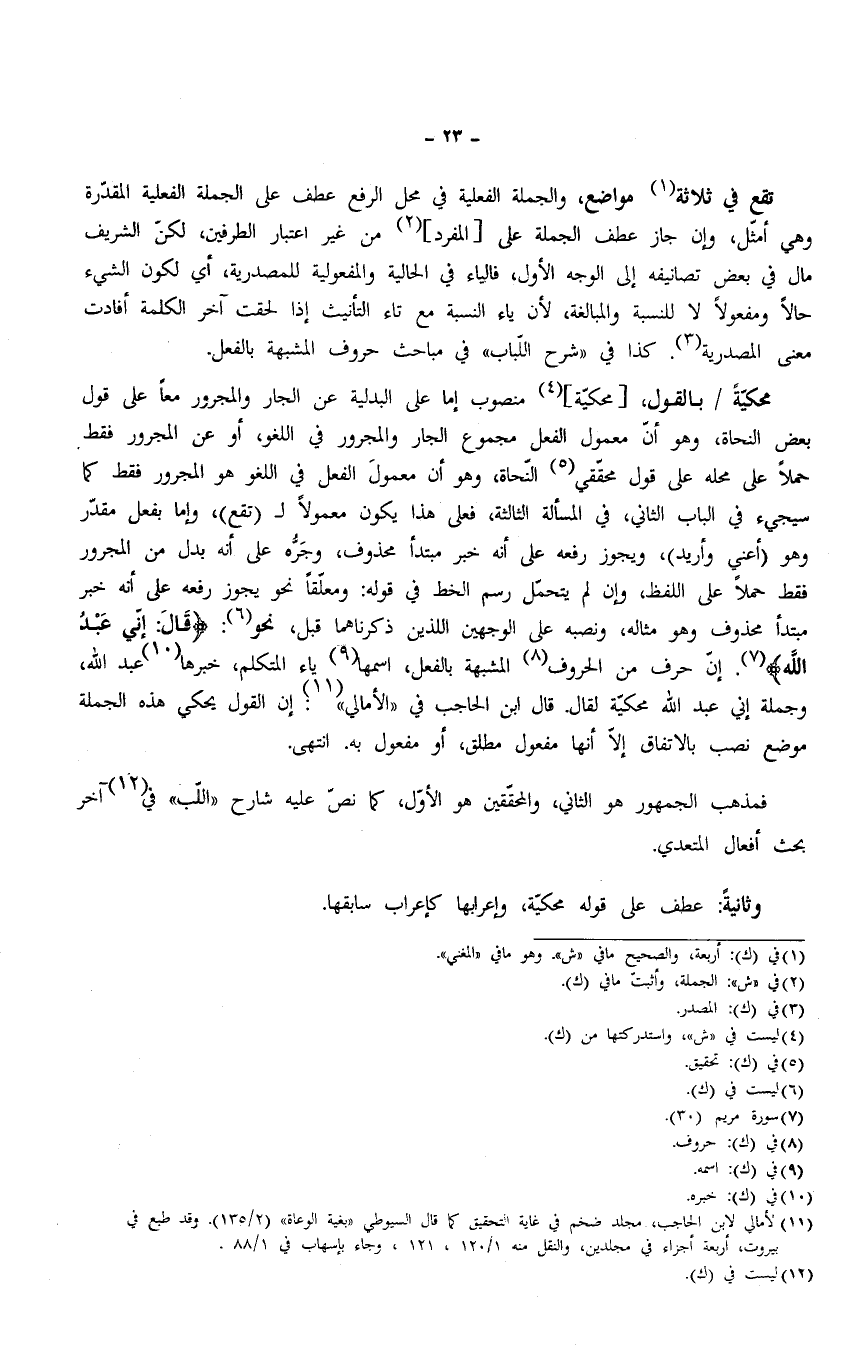 - ٢٣ -
تقع في ثلاثة(١) مواضع، والجملة الفعلية في محل الرفع عطف على الجملة الفعلية المقدّرة
وهي أمثّل، وإن جاز عطف الجملة على [المفرد](٢) من غير اعتبار الطرفين، لكنّ الشريف
مال في بعض تصانيفه إلى الوجه الأول، فالياء في الحالية والمفعولية للمصدرية، أي لكون الشيء
حالاً ومفعولاً لا للنسبة والمبالغة، لأن ياء النسبة مع تاء التأنيث إذا لحقت آخر الكلمة أفادت
معنى المصدرية(٣). كذا في «شرح اللّباب» في مباحث حروف المشبهة بالفعل.
محكيّةً / بـالقـول، [محكيّة](٤) منصوب إما على البدلية عن الجار والمجرور معاً على قول
بعض النحاة، وهو أنّ معمول الفعل مجموع الجار والمجرور في اللغو، أو عن المجرور فقط
حملاً على محله على قول محقّقي(٥) النّحاة، وهو أن معمولَ الفعل في اللغو هو المجرور فقط كما
سيجيء في الباب الثاني، في المسألة الثالثة، فعلى هذا يكون معمولاً لـ (تقع)، وإما بفعل مقدّر
وهو (أعني وأريد)، ويجوز رفعه على أنه خبر مبتدأ محذوف، وجَرُّه على أنه بدل من المجرور
فقط حملاً على اللفظ، وإن لم يتحمّل رسم الخط في قوله: ومعلّقاً نحو يجوز رفعه على أنه خبر
مبتدأ محذوف وهو مثاله، ونصبه على الوجهين اللذين ذكرناهما قبل، نحو(٦): ﴿قَالَ: إنّي عَبْدُ
اللَّه﴾(٧). إنّ حرف من الحروف(٨) المشبهة بالفعل، اسمها(٩) ياء المتكلم، خبرها(١٠) عبد الله،
وجملة إني عبد الله محكيّة لقال. قال ابن الحاجب في «الأمالي»(١١): إن القول يحكي هذه الجملة
موضع نصب بالاتفاق إلاّ أنها مفعول مطلق، أو مفعول به. انتهى.
فمذهب الجمهور هو الثاني، والمحقّقين هو الأوّل، كما نصّ عليه شارح «اللّب» في(١٢) آخر
بحث أفعال المتعدي.
وثانيةً: عطف على قوله محكيّة، وإعرابها كإعراب سابقها.
(١) في (ك): أربعة، والصحيح مافي «ش». وهو مافي «المغني».
(٢) في «ش»: الجملة، وأثبتّ مافي (ك).
(٣) في (ك): المصدر.
(٤) ليست في «ش»، واستدركتها من (ك).
(٥) في (ك): تحقيق.
(٦) ليست في (ك).
(٧) سورة مريم (٣٠).
(٨) في (ك): حروف.
(٩) في (ك): اسمه.
(١٠) في (ك): خبره.
(١١) لأمالي لابن الحاجب، مجلد ضخم في غاية التحقيق كما قال السيوطي «بغية الوعاة» (١٣٥/٢). وقد طبع في
بيروت، أربعة أجزاء في مجلدين، والنقل منه ١٢٠/١ ، ١٢١ ، وجاء بإسهاب في ٨٨/١ .
(١٢) ليست في (ك).